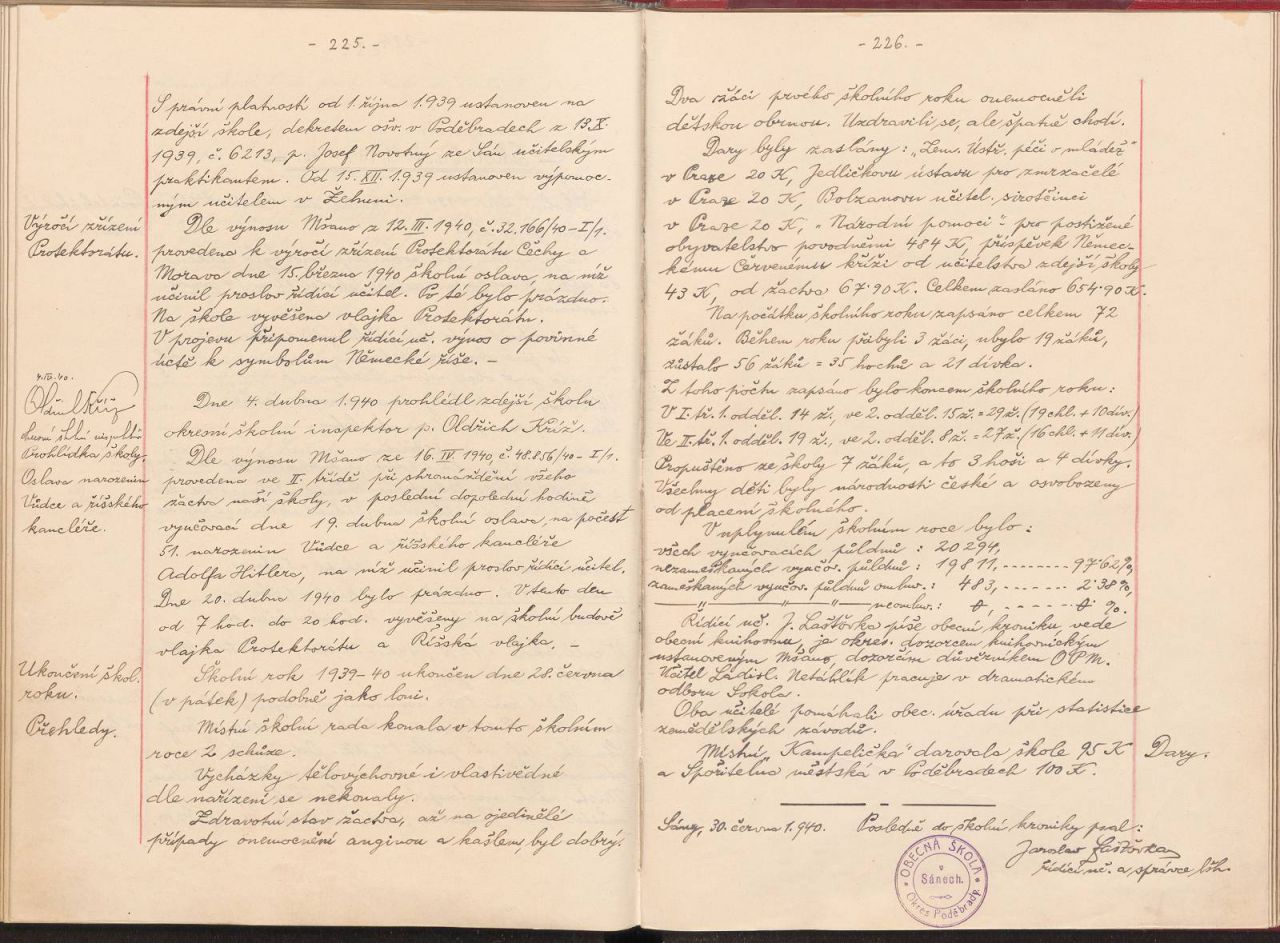 - 225. -
S právní platností od 1. října 1.939 ustanoven na
zdejší škole, dekretem ošv. v Poděbradech z 13.X.
1939, č. 6213, p. Josef Novotný ze Sán učitelským
praktikantem. Od 15. XII. 1.939 ustanoven výpomoc-
ným učitelem v Žehuni.
Výročí zřízení
Protektorátu.
Dle výnosu Mšano z 12. III. 1.940, č. 32.166/40-I/1.
provedena k výročí zřízení Protektorátu Čechy a
Morava dne 15. března 1940 školní oslava, na níž
učinil proslov řídící učitel. Po té bylo prázdno.
Na škole vyvěšena vlajka Protektorátu.
V projevu připomenul řídící uč. výnos o povinné
úctě k symbolům Německé říše. -
4.IV.40.
Prohlídka školy.
Dne 4. dubna 1.940 prohlédl zdejší školu
okresní školní inspektor p. Oldřich Kříž.
Oslava narozenin
Vůdce a říšského
kancléře.
Dle výnosu Mšano ze 16. IV. 1940, č. 48.856/40-I/1.
provedena ve II. třídě při shromáždění všeho
žactva naší školy, v poslední dopolední hodině
vyučovací dne 19. dubna školní oslava, na počest
51. narozenin Vůdce a říšského kancléře
Adolfa Hitlera, na níž učinil proslov řídící učitel.
Dne 20. dubna 1940 bylo prázdno. V tento den
od 7 hod. do 20 hod. vyvěšeny na školní budově
vlajka Protektorátu a Říšská vlajka. -
Ukončení škol.
roku.
Školní rok 1939-40 ukončen dne 28. června
(v pátek) podobně jako loni.
Přehledy.
Místní školní rada konala v tomto školním
roce 2 schůze.
Vycházky tělovýchovné i vlastivědné
dle nařízení se nekonaly.
Zdravotní stav žactva, až na ojedinělé
případy onemocnění anginou a kašlem, byl dobrý.
- 226. -
Dva žáci prvého školního roku onemocněli
dětskou obrnou. Uzdravili se, ale špatně chodí.
Dary byly zaslány: „Zem. Ústř. péči o mládež"
v Praze 20 K, Jedličkovu ústavu pro zmrzačelé
v Praze 20 K, Bolzanovu učitel. sirotčinci
v Praze 20 K, „Národní pomoci" pro postižené
obyvatelstvo povodněmi 484 K, příspěvek Němec-
kému Červenému kříži od učitelstva zdejší školy
43 K, od žactva 67·90 K. Celkem zasláno 654·90 K.
Na počátku školního roku zapsáno celkem 72
žáků. Během roku přibyli 3 žáci, ubylo 19 žáků,
zůstalo 56 žáků = 35 hochů a 21 dívka.
Z toho počtu zapsáno bylo koncem školního roku:
V I. tř. 1. odděl. 14 ž., ve 2. odděl. 15 ž. = 29 ž. (19 chl. + 10 dív.)
Ve II. tř. 1. odděl. 19 ž., ve 2. odděl. 8 ž. = 27 ž. (16 chl. + 11 dív.)
Propuštěno ze školy 7 žáků, a to 3 hoši a 4 dívky.
Všechny děti byly národnosti české a osvobozeny
od placení školného.
V uplynulém školním roce bylo:
všech vyučovacích půldnů: 20 294,
nezameškaných vyučov. půldnů: 19811, -------- 97·62 %,
zameškaných vyučov. půldnů omluv.: 483, ------ 2·38 %,
—— " —— " —— " —— neomluv.: 0, - ----- 0· %.
Řídící uč. J. Laštůvka píše obecní kroniku, vede
obecní knihovnu, je okres. dozorcem knihovnickým
ustanoveným Mšano, dozorčím důvěrníkem O.P.M.
Učitel Ladisl. Netáhlík pracuje v dramatickém
odboru Sokola.
Oba učitelé pomáhali obec. úřadu při statistice
zemědělských závodů.
Místní „Kampelička" darovala škole 95 K
a Spořitelna městská v Poděbradech 100 K.
Dary.
Sány, 30. června 1.940. Posledně do školní kroniky psal:
Jaroslav Laštůvka
řídící uč. a správce
OBECNÁ ŠKOLA
v
Sánech.
Okres Poděbrady